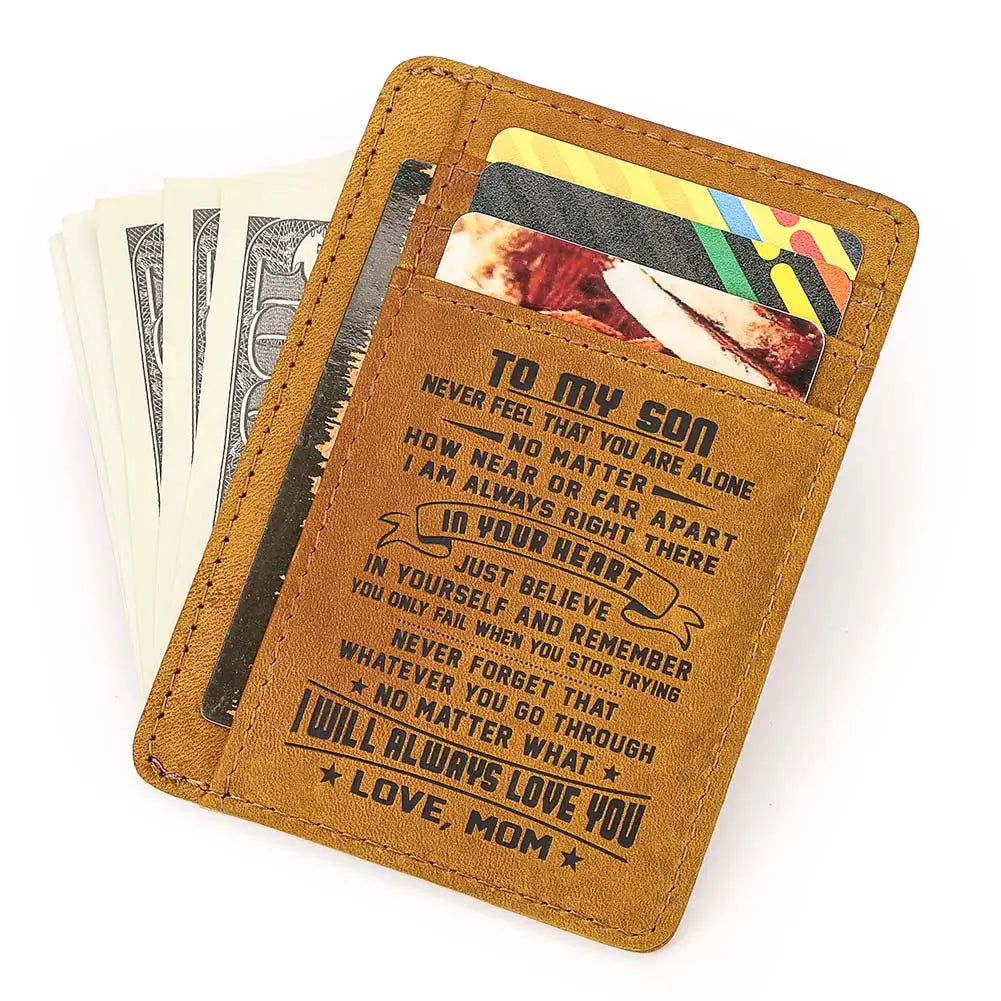 TO MY SON
NEVER FEEL THAT YOU ARE ALONE
NO MATTER
HOW NEAR OR FAR APART
I AM ALWAYS RIGHT THERE
IN YOUR HEART
JUST BELIEVE
IN YOURSELF AND REMEMBER
YOU ONLY FAIL WHEN YOU STOP TRYING
NEVER FORGET THAT
WHATEVER YOU GO THROUGH
NO MATTER WHAT
I WILL ALWAYS LOVE YOU
LOVE, MOM